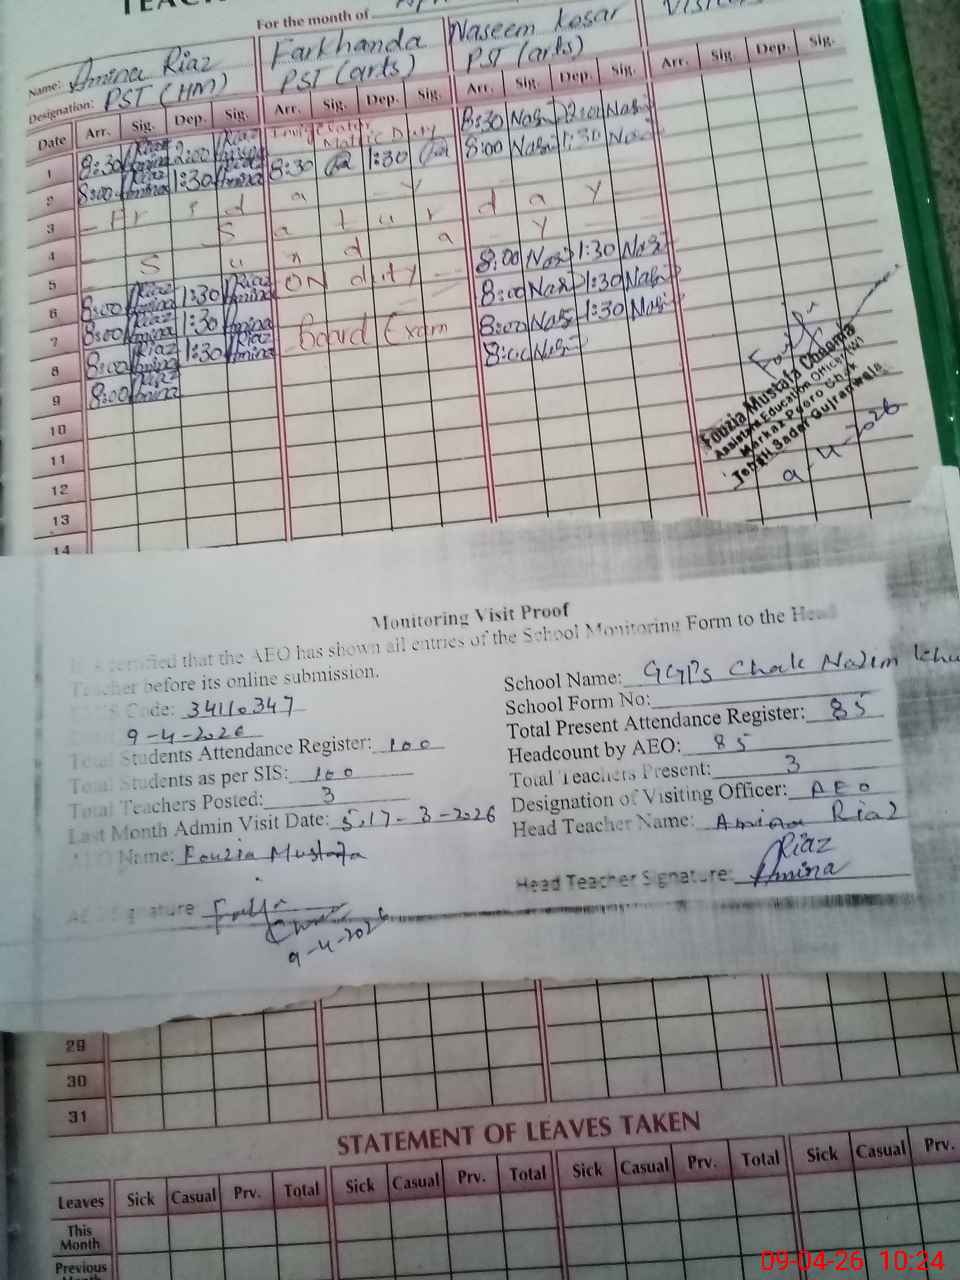 TEACH
For the month of
Name: Amina Riaz Farkhanda Naseem Kosar
Designation: PST (HM) PST (arts) PST (arts)
Date Arr. Sig. Dep. Sig. Arr. Sig. Dep. Sig. Arr. Sig. Dep. Sig. Arr. Sig. Dep. Sig.
1 8:30 Riaz Amina 2:00 Riaz Amina Matric Duty 8:30 Nas 2:00 Nas
2 8:00 Riaz Amina 1:30 Riaz Amina 8:30 1:30 8:00 Nas 1:30 Nas
3 F r i d a y
4 S a t u r d a y
5 S u n d a y
6 8:00 Riaz Amina 1:30 Riaz Amina ON duty 8:00 Nas 1:30 Nas
7 8:00 Riaz Amina 1:30 Riaz Amina 8:00 Nas 1:30 Nas
8 8:00 Riaz Amina 1:30 Riaz Amina Board Exam 8:00 Nas 1:30 Nas
9 8:00 Riaz Amina 8:00 Nas
10
11
12
13
14
Fouzia Mustafa Chaanda
Assistant Education Officer (W)
Markaz Peero Chak
Teh: Sadar Gujranwala
9-4-2026
Monitoring Visit Proof
certified that the AEO has shown all entries of the School Monitoring Form to the Head
Teacher before its online submission.
Code: 34110347
9-4-2026
Total Students Attendance Register: 100
Total Students as per SIS: 100
Total Teachers Posted: 3
Last Month Admin Visit Date: 5,17-3-2026
Name: Fouzia Mustafa
AEO Signature
9-4-2026
School Name: GGPS Chak Nazim
School Form No:
Total Present Attendance Register: 85
Headcount by AEO: 85
Total Teachers Present: 3
Designation of Visiting Officer: AEO
Head Teacher Name: Amina Riaz
Head Teacher Signature: Riaz Amina
29
30
31
STATEMENT OF LEAVES TAKEN
Leaves Sick Casual Prv. Total Sick Casual Prv. Total Sick Casual Prv. Total Sick Casual Prv.
This Month
Previous
09-04-26 10:24